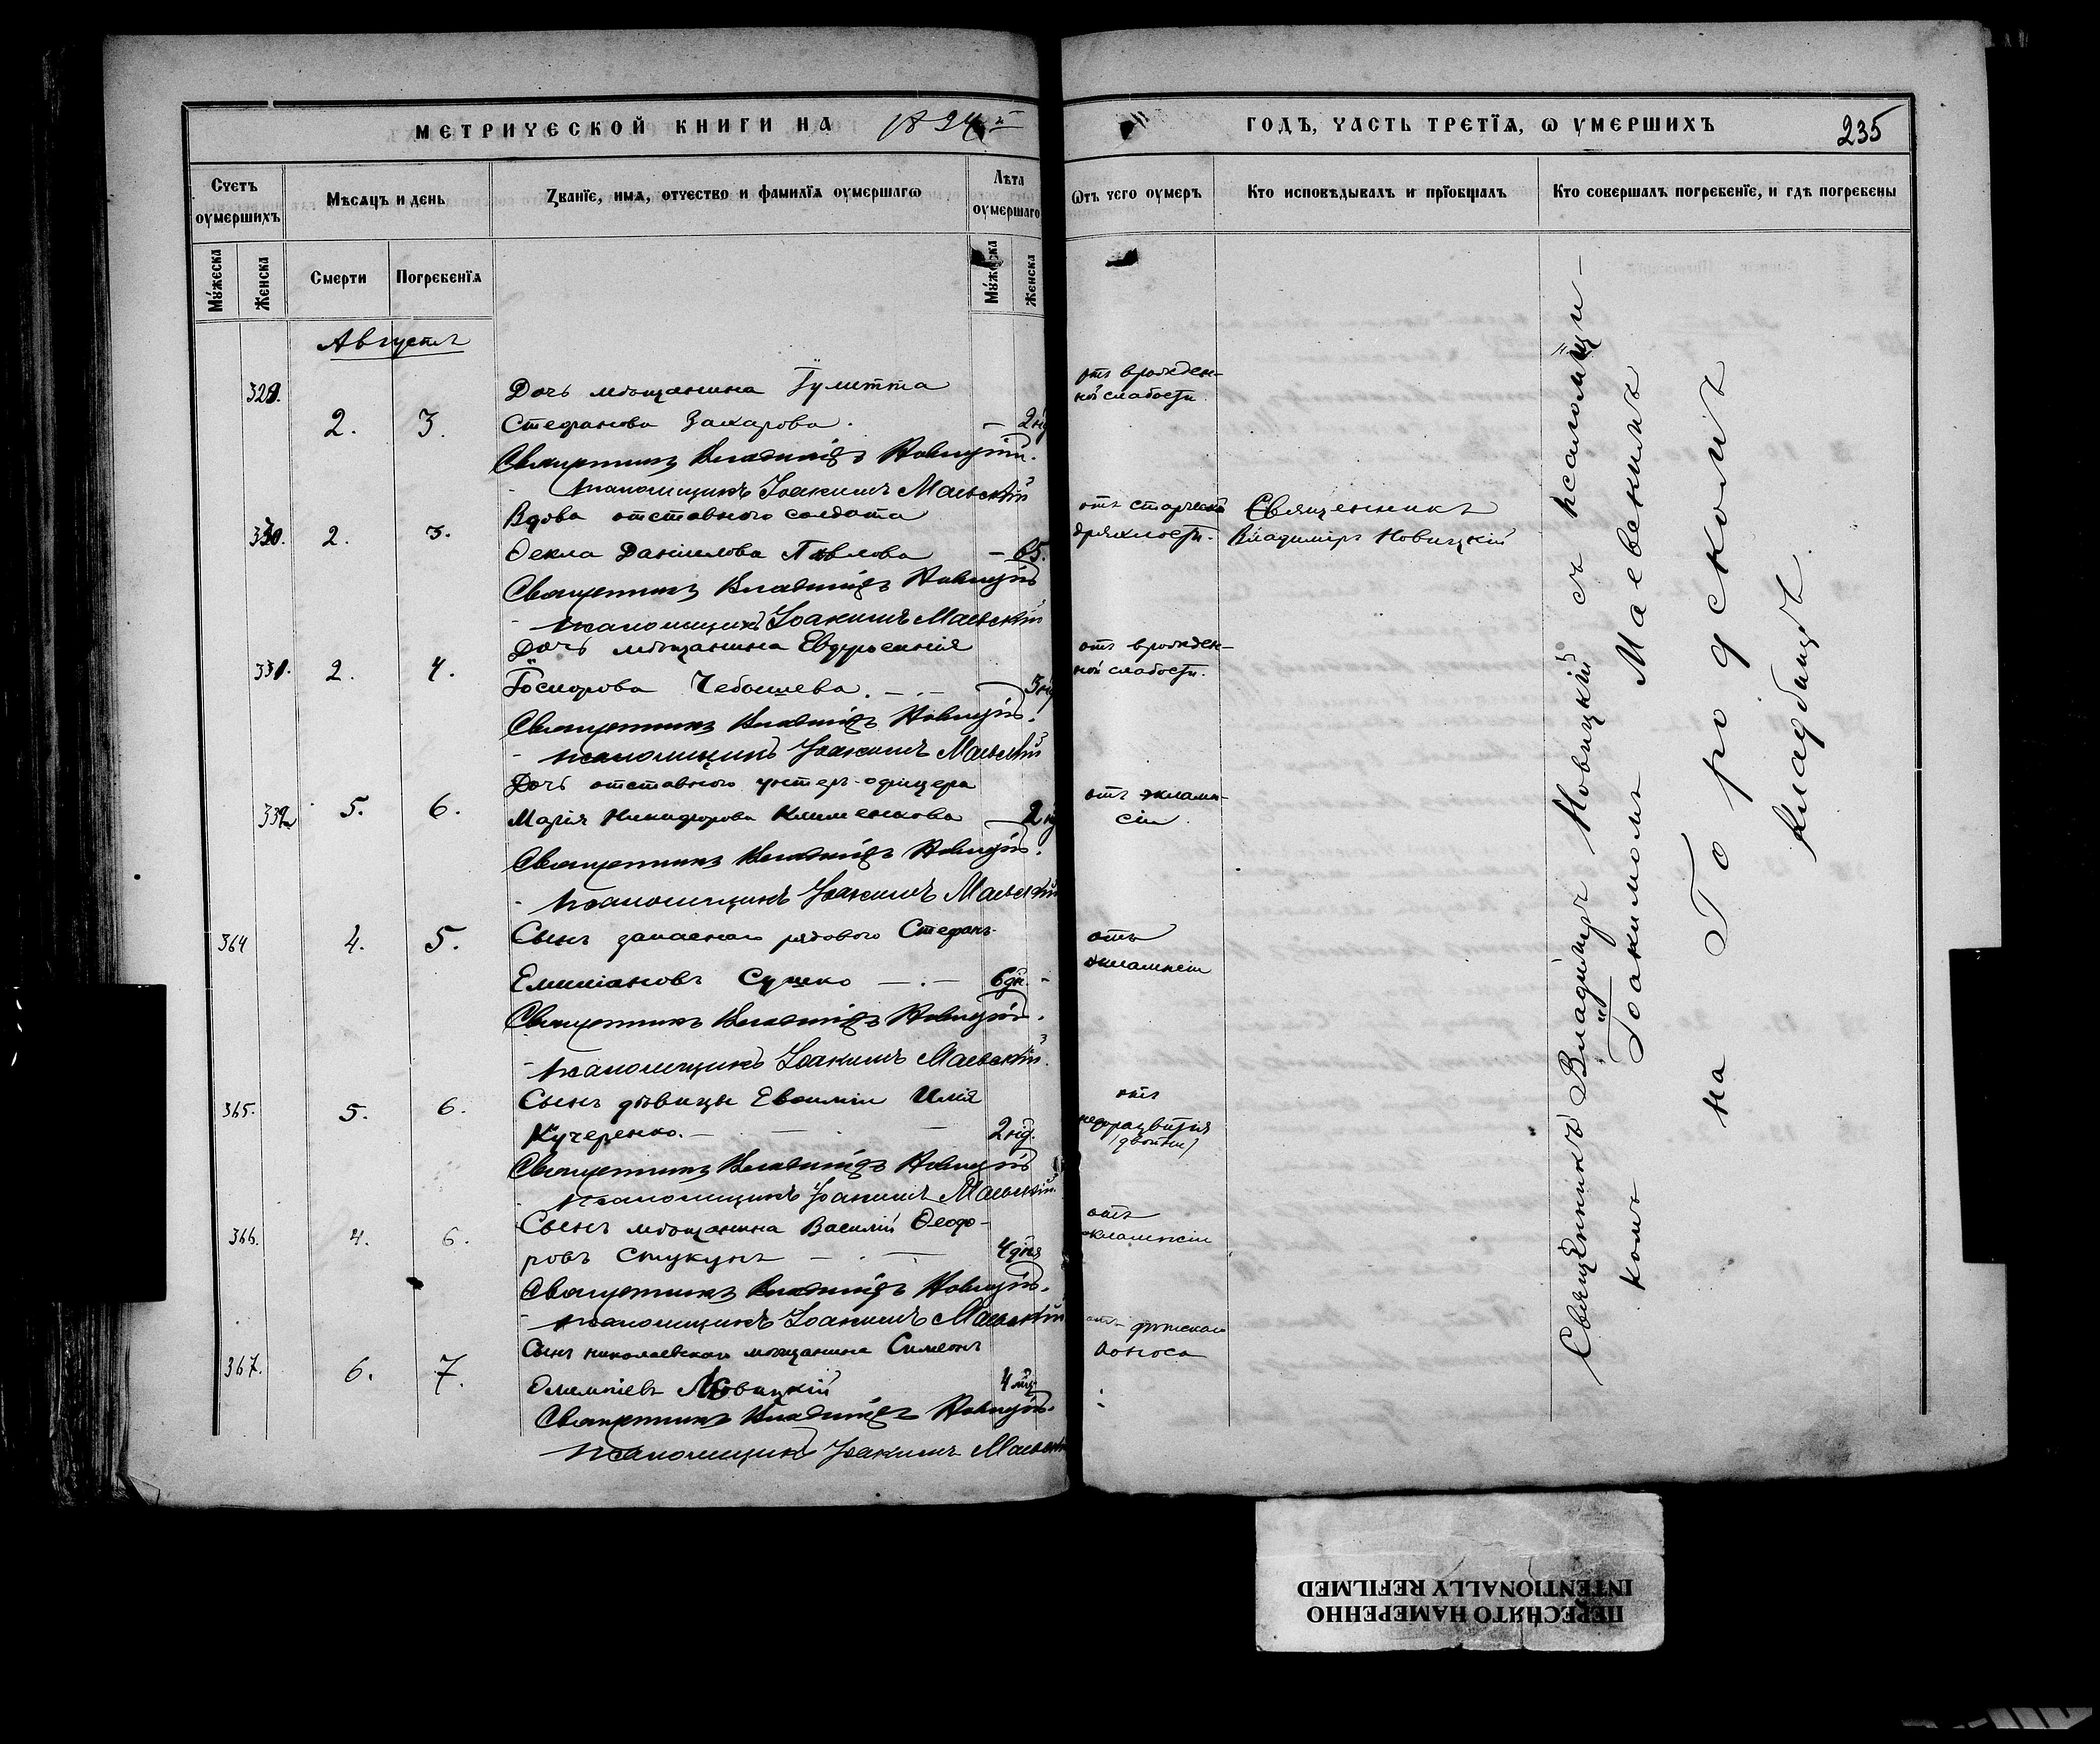 МЕТРИЧЕСКОЙ КНИГИ НА 1894й
ГОДЪ, ЧАСТЬ ТРЕТЇѦ, Ѡ УМЕРШИХЪ
235
Счетъ оумершихъ
Мѣсѧцъ и день
Званїе, имѧ, отчество и фамилїѧ оумершагѡ
Лѣта оумершаго
Ѿтъ чего оумеръ
Кто исповѣдывалъ и прїобщалъ
Кто совершалъ погребенїе, и гдѣ погребены
Мужеска
Женска
Смерти
Погребенїѧ
Мужеска
Женска
Августъ
329.
2. 3.
Дочь мѣщанина Іулитта
Стефанова Захарова. — 2 нд
отъ врожден-
ной слабости.
Священникъ Владиміръ Новицкій.
псаломщикъ Іоакимъ Маевскій
330. 2. 3.
Вдова отставного солдата
Ѳекла Даніилова Павлова — 65.
отъ старческой
дряхлости.
Священникъ
Владиміръ Новицкій
Священникъ Владиміръ Новицкій
псаломщикъ Іоакимъ Маевскій
331. 2. 4.
Дочь мѣщанина Евфросинія
Чебышева. 3 нд
отъ врожден-
ной слабости.
Священникъ Владиміръ Новицкій.
псаломщикъ Іоакимъ Маевскій
332 5. 6.
Дочь отставного унтеръ-офицера
Марія Никифорова Клименкова 2 нд
отъ эклами-
сіи.
Священникъ Владиміръ Новицкій.
псаломщикъ Іоакимъ Маевскій
364 4. 5.
Сынъ запаснаго рядового Стефанъ
Емиліановъ Сушко — . — 6 дн. -
отъ
экламсіи
Священникъ Владиміръ Новицкій.
псаломщикъ Іоакимъ Маевскій.
365. 5. 6.
Сынъ дѣвицы Евѳиміи Илія
Кучеренко. — — — 2 нд.
отъ
недоразвитія
(двойни)
Священникъ Владиміръ Новицкій
псаломщикъ Іоакимъ Маевскій.
366. 4. 6.
Сынъ мѣщанина Василій Ѳеодо-
ровъ Стукунъ — . — 4 дня
отъ
экламсіи
Священникъ Владиміръ Новицкій.
псаломщикъ Іоакимъ Маевскій
367. 6. 7.
Сынъ николаевскаго мѣщанина Симеонъ
Олимпіевъ 4 мц
отъ дѣтскаго
поноса
Священникъ Владиміръ Новицкій.
псаломщикъ Іоакимъ Маевскій
Священникъ Владиміръ Новицкій съ псаломщи-
комъ Іоакимомъ Маевскимъ
на Городскомъ
кладбищѣ.
ПЕРЕСНЯТО НАМЕРЕННО
INTENTIONALLY REFILMED